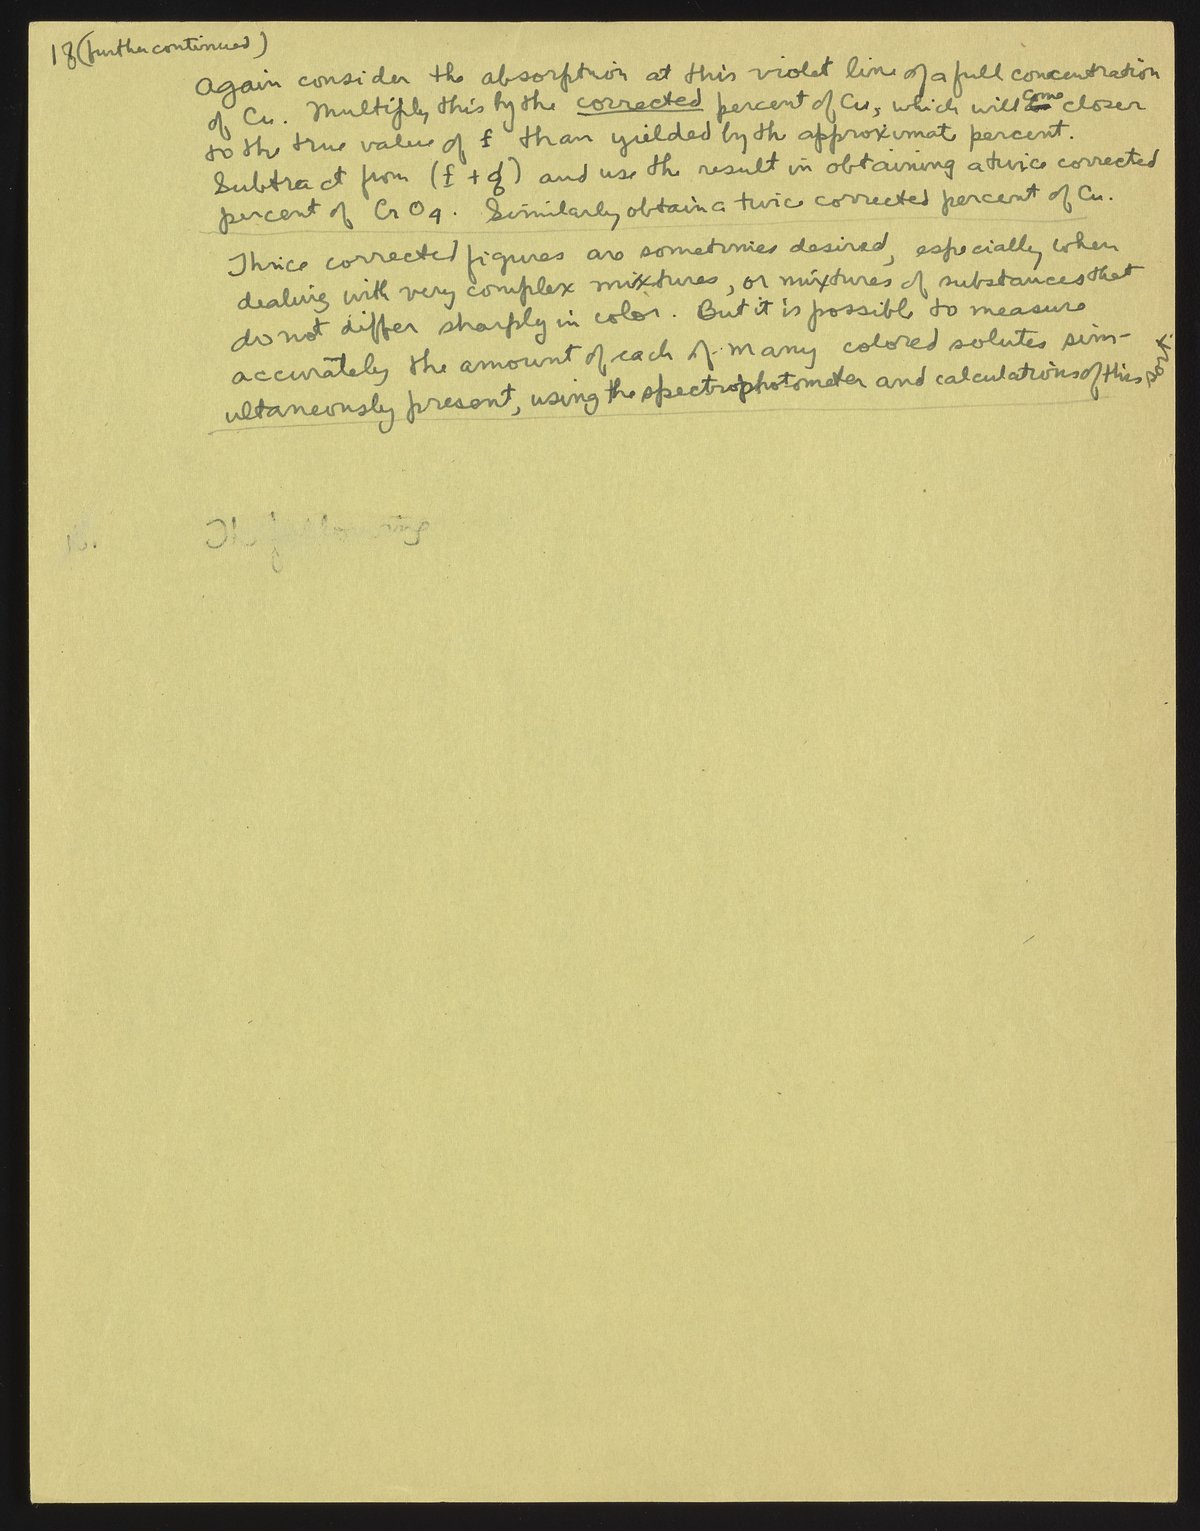 18 (further continued)
Again consider the absorption at this violet line of a full concentration
of Cu. Multiply this by the corrected percent of Cu, which will come closer
to the true value of f than yielded by the approximate percent.
Subtract from (f + g) and use the result in obtaining a twice corrected
percent of CrO4. Similarly obtain a twice corrected percent of Cu.
Thrice corrected figures are sometimes desired, especially when
dealing with very complex mixtures, or mixtures of substances that
do not differ sharply in color. But it is possible to measure
accurately the amount of each of many colored solutes sim-
ultaneously present, using the spectrophotometer and calculations of this sort.